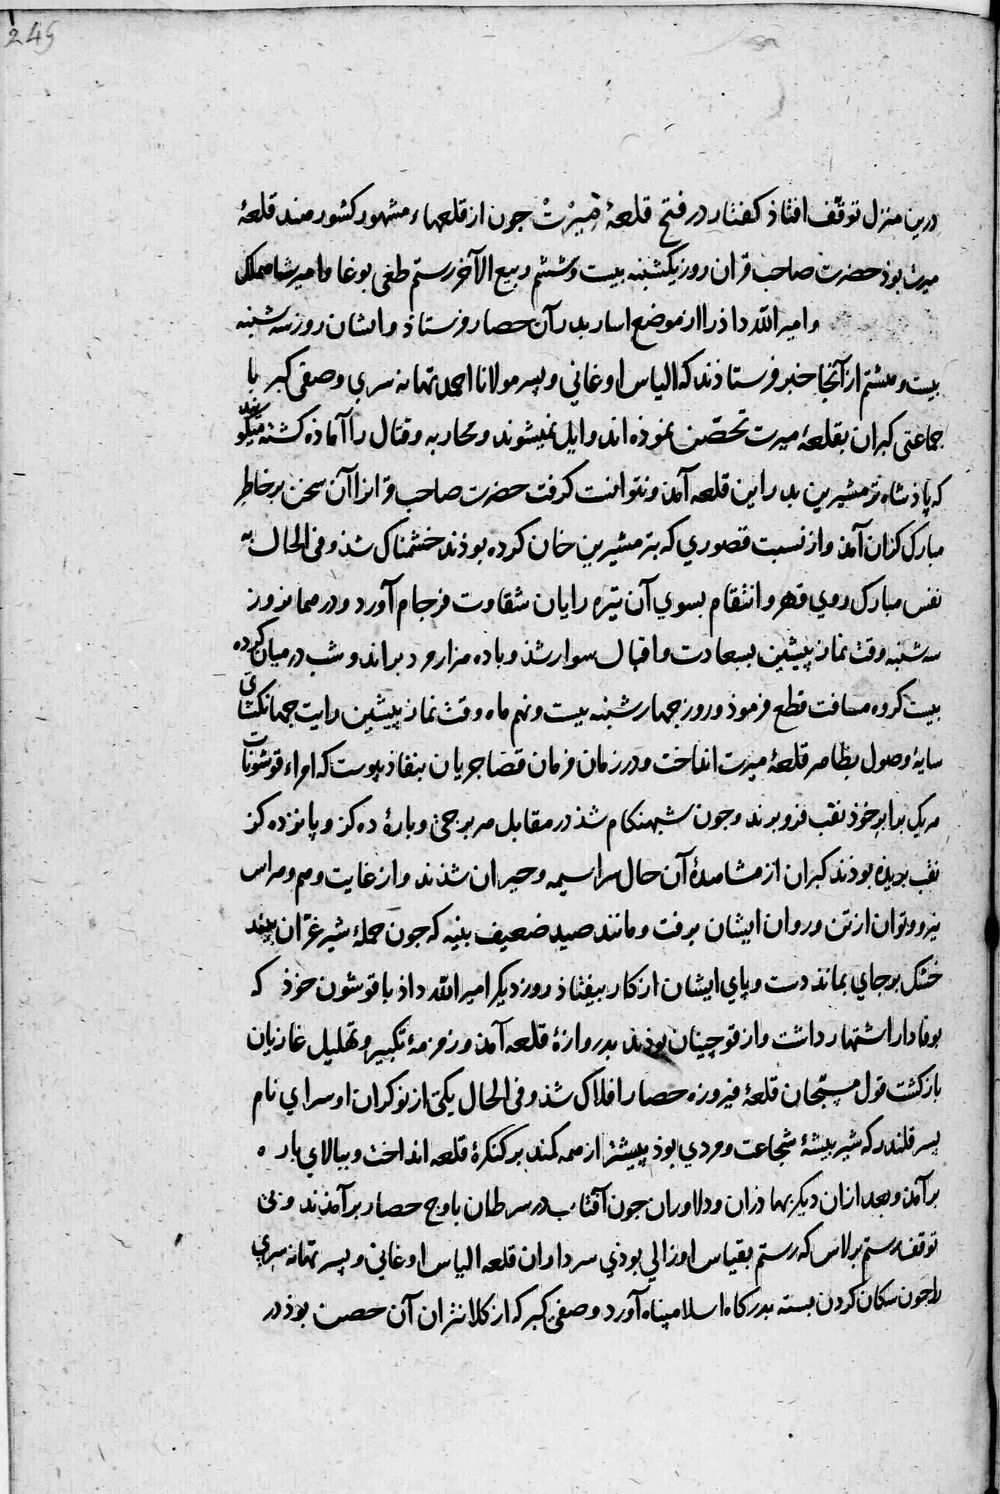 245
درین منزل توقف افتاذ کفتار در فتح قلعهٔ میرت جون از قلعهاء مشهور کشور هند قلعهٔ
میرت بوذ حضرت صاحب قران روز یکشنبه بیست وششم ربیع الآخر رستم طغی بوغا وامیر شاهملک
وامیر الله داذ را از موضع اسار بدر آن حصار فرستاذ وایشان روز سه شنبه
بیست وهشتم از آنجا خبر فرستاذند که الیاس اوغانی وپسر مولانا احمد تهانه سری وصفی کبر با
جماعتی کبران بقلعهٔ میرت تحصّن نموذه اند وایل نمیشوند ومحاربه وقتال را آماذه کشته میکویند
که پاذشاه ترمشیرین بدر این قلعه آمذ ونتوانست کرفت حضرت صاحب قرانرا آن سخن بر خاطر
مبارک کران آمذ واز نسبت قصوری که بترمشیرین خان کرده بوذند خشمناک شذ وفی الحال به
نفس مبارک روی قهر وانتقام بسوی آن تیره رایان شقاوت فرجام آورد ودر همانروز
سه شنبه وقت نماز پیشین بسعادت واقبال سوار شذ وبا ده هزار مرد براند وشب در میان کرده
بیست کروه مسافت قطع فرموذ وروز جهارشنبه بیست ونهم ماه وقت نماز پیشین رایت جهانکشای
سایهٔ وصول بظاهر قلعهٔ میرت انداخت ودر زمان فرمان قضا جریان بنفاذ پیوست که امراء قوشونات
هر یک برابر خوذ نقب فرو برند وجون شبهنکام شذ در مقابل هر برجی وبارهٔ ده کز وپانزده کز
نقب بریذه بوذند کبران از مشاهدهٔ آن حال سراسیمه وحیران شذند واز غایت وهم وهراس
نیرو وتوان از تن وروان ایشان برفت ومانند صید ضعیف بنیه که جون حملهٔ شیر غرّان بیند
خشک بر جای بماند دست وپای ایشان از کار بیفتاذ روز دیکر امیر الله داذ با قوشون خوذ که
بوفادار اشتهار داشت واز قوچینان بوذند بدروازهٔ قلعه آمذ وزمزمهٔ تکبیر وتهلیل غازیان
بازکشت قول مسبّحان قلعهٔ فیروزه حصار افلاک شذ وفی الحال یکی از نوکران او سرای نام
پسر قلندر که شیر بیشهٔ شجاعت ومردی بوذ پیشتر از همه کمند بر کنکرهٔ قلعه انداخت وببالای باره
برآمذ وبعد ازان دیکر بهاذران ودلاوران جون آفتاب در سرطان باوج حصار برآمذند وبی
توقف رستم برلاس که رستم بقیاس او زالی بوذی سرداران قلعه الیاس اوغانی وپسر تهانه سری
را جون سکان کردن بسته بدرکاه اسلام پناه آورد وصفی کبر که از کلانتران آن حصن بوذ در